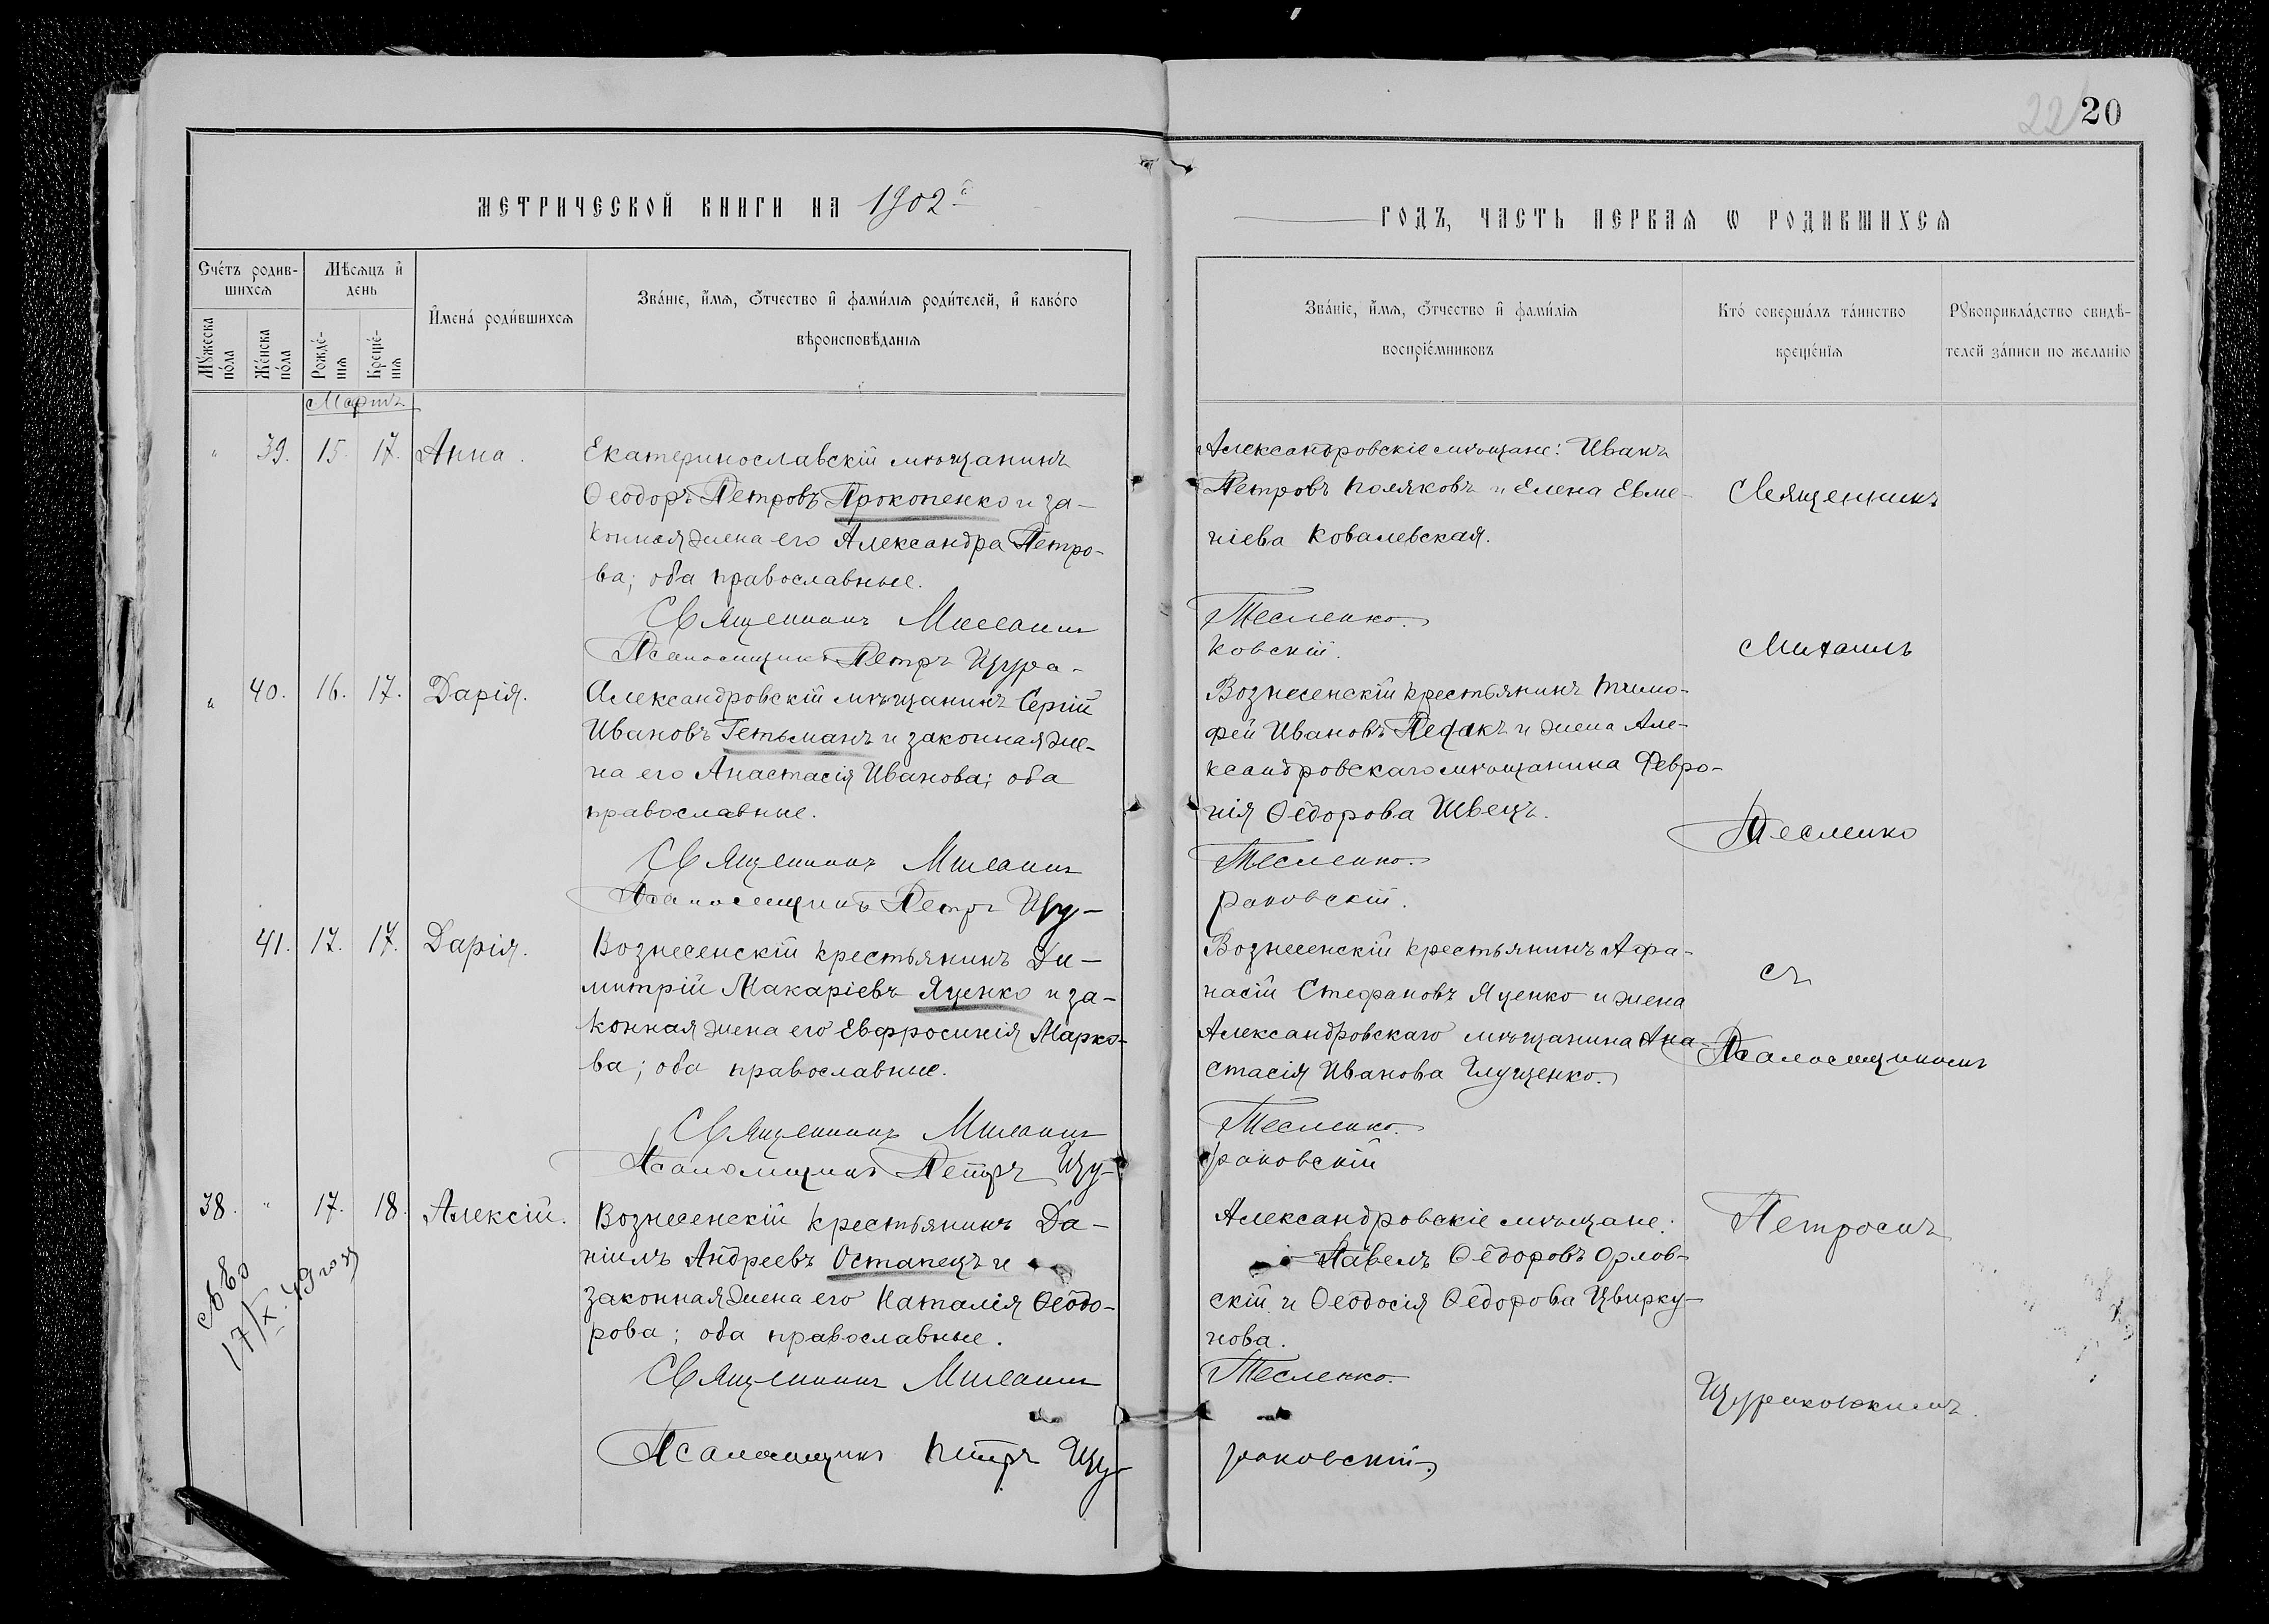 22 20
МЕТРИЧЕСКОЙ КНИГИ НА 1902й
ГОДЪ, ЧАСТЬ ПЕРВАЯ Ѡ РОДИВШИХСЯ
Счетъ родив-
шихся
Мѣсяцъ и
день
Мужеска
пола
Женска
пола
Рожде-
нія
Креще-
нія
Имена родившихся
Званіе, имя, ѻтчество и фамилія родителей, и какого
вѣроисповѣданія
Званіе, имя, ѻтчество и фамилія
воспріемниковъ
Кто совершалъ таинство
крещенія
Рукоприкладство свидѣ-
телей записи по желанію
Мартъ
" 39. 15. 17. Анна.
Екатеринославскій мѣщанинъ
Ѳеодоръ Петровъ Прокопенко и за-
конная жена его Александра Петро-
ва; оба православные.
Священникъ Михаилъ
Псаломщикъ Петръ Цура-
Александровскіе мѣщане: Иванъ
Петровъ Поляковъ и Елена Евме-
ніева Ковалевская.
Тесленко.
ковскій.
" 40. 16. 17. Дарія.
Александровскій мѣщанинъ Сергій
Ивановъ Гетьманъ и законная же-
на его Анастасія Иванова; оба
православные.
Священникъ Михаилъ
Псаломщикъ Петръ Цу-
Вознесенскій крестьянинъ Тимо-
фей Ивановъ и жена Але-
ксандровскаго мѣщанина Февро-
нія Ѳедорова Швецъ.
Тесленко.
раковскій.
41. 17. 17. Дарія.
Вознесенскій крестьянинъ Ди-
митрій Макаріевъ Яценко и за-
конная жена его Евфросинія Марко-
ва; оба православные.
Священникъ Михаилъ
Псаломщикъ Петръ Цу-
Вознесенскій крестьянинъ Афа-
насій Стефановъ Яценко и жена
Александровскаго мѣщанина Ана-
стасія Иванова Глущенко.
Тесленко.
раковскій
38. " 17. 18. Алексій.
17/X. 49 года
Вознесенскій крестьянинъ Да-
ніилъ Андреевъ Остапецъ и
законная жена его Наталія Ѳеодо-
рова; оба православные.
Священникъ Михаилъ
Псаломщикъ Петръ Цу-
Александровскіе мѣщане:
Павелъ Ѳедоровъ Орлов-
скій и Ѳеодосія Ѳедорова Цвирку-
нова.
Тесленко.
раковскій.
Священникъ
Михаилъ
Тесленко
съ
Псаломщикомъ
Петромъ
Цураковскимъ.